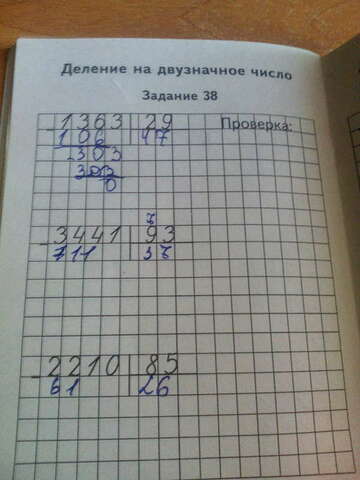 Деление на двузначное число
Задание 38
1363 29 Проверка:
106 47
303
303
0
3441 93
711 37
2210 85
61 26